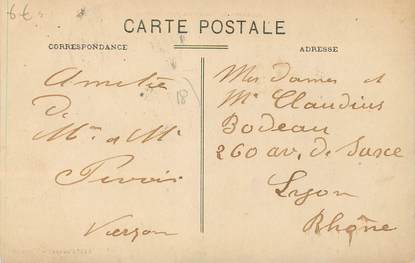 6€
CARTE POSTALE
CORRESPONDANCE
ADRESSE
Amitié
de
Mme et Mr
Vierzon
18
Mesdames et
Mr Claudius
Bodeau
260 av. de Saxe
Lyon
Rhône